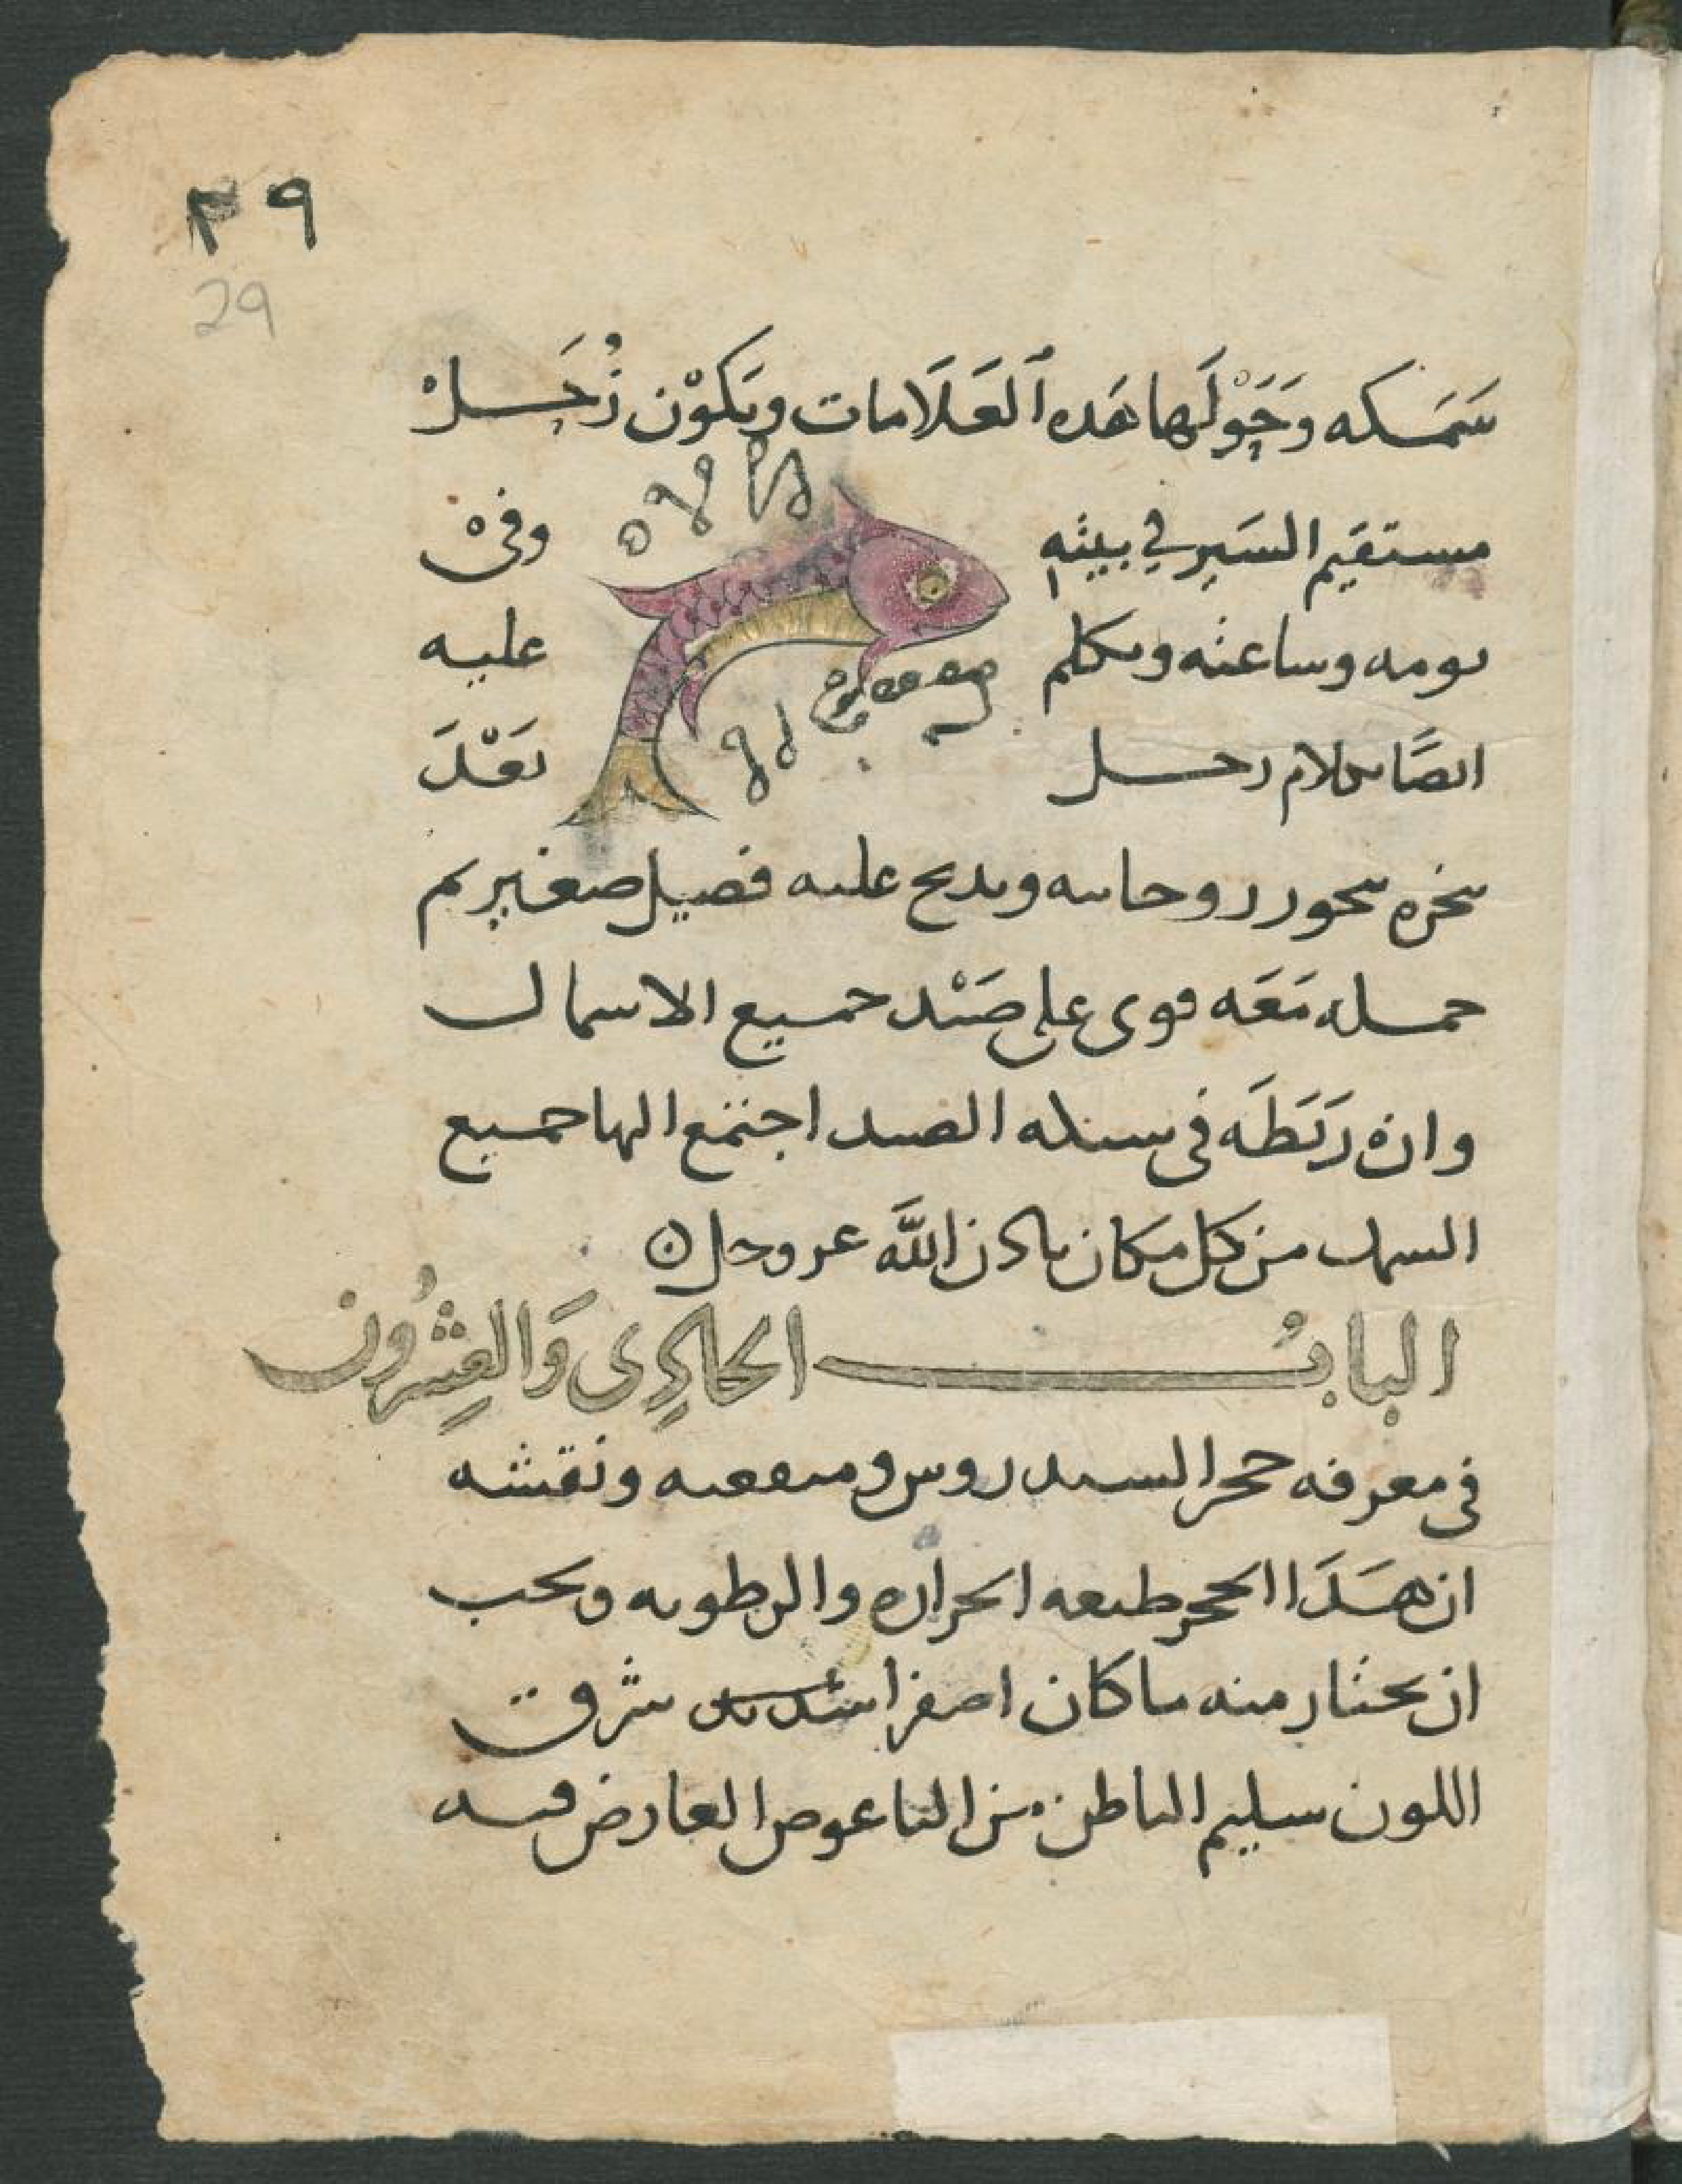 ٢٩
29
سَمَكه وَحَوْلَها هَذه ٱلعَلَامات ويَكوْن زُحَل
مستقيم السَير في بيته وفى
يومه وساعته ويكلم عليه
ايضًا بكلام زحل بَعْدَ
بخره ببخور روحانيه ويذبح عليه فصيل صغير ثم
حمله مَعَه قوى على صَيْد جميع الاسماك
وان رَبَطَه فى شبكه الصيد اجتمع اليها جميع
السمك من كل مكان باذن اللَّه عز وجل ن
البابُ الحادِى وَالعِشرُون
فى معرفه حجر السندروس ومنفعته ونقشه
ان هَذَا الحجر طبعه الحراره والرطوبه ويجب
ان يختار منه ما كان اصفرا شديد شرق
اللون سليم الباطن من العارض فيه